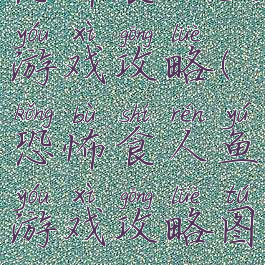 yóu xì gōng lüè
游戏攻略(
kǒng bù shí rén yú
恐怖食人鱼
yóu xì gōng lüè tú
游戏攻略图